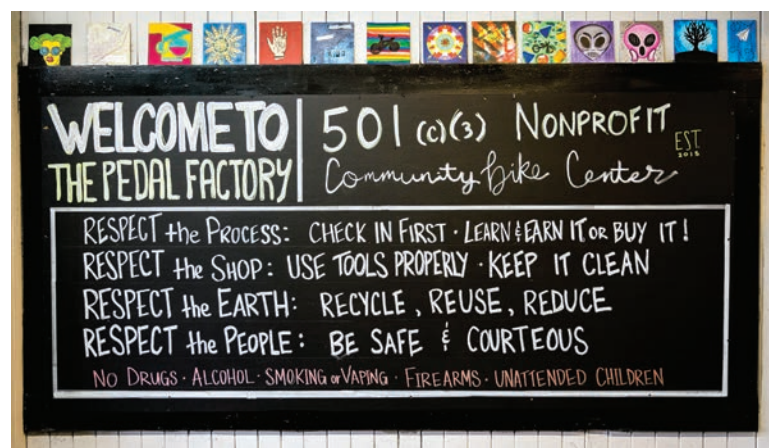 WELCOME TO
THE PEDAL FACTORY
501 (c)(3) NONPROFIT
Community Bike Center
EST.
2015
RESPECT the PROCESS: CHECK IN FIRST · LEARN & EARN IT or BUY IT!
RESPECT the SHOP: USE TOOLS PROPERLY · KEEP IT CLEAN
RESPECT the EARTH: RECYCLE, REUSE, REDUCE
RESPECT the PEOPLE: BE SAFE & COURTEOUS
NO DRUGS · ALCOHOL · SMOKING or VAPING · FIREARMS · UNATTENDED CHILDREN